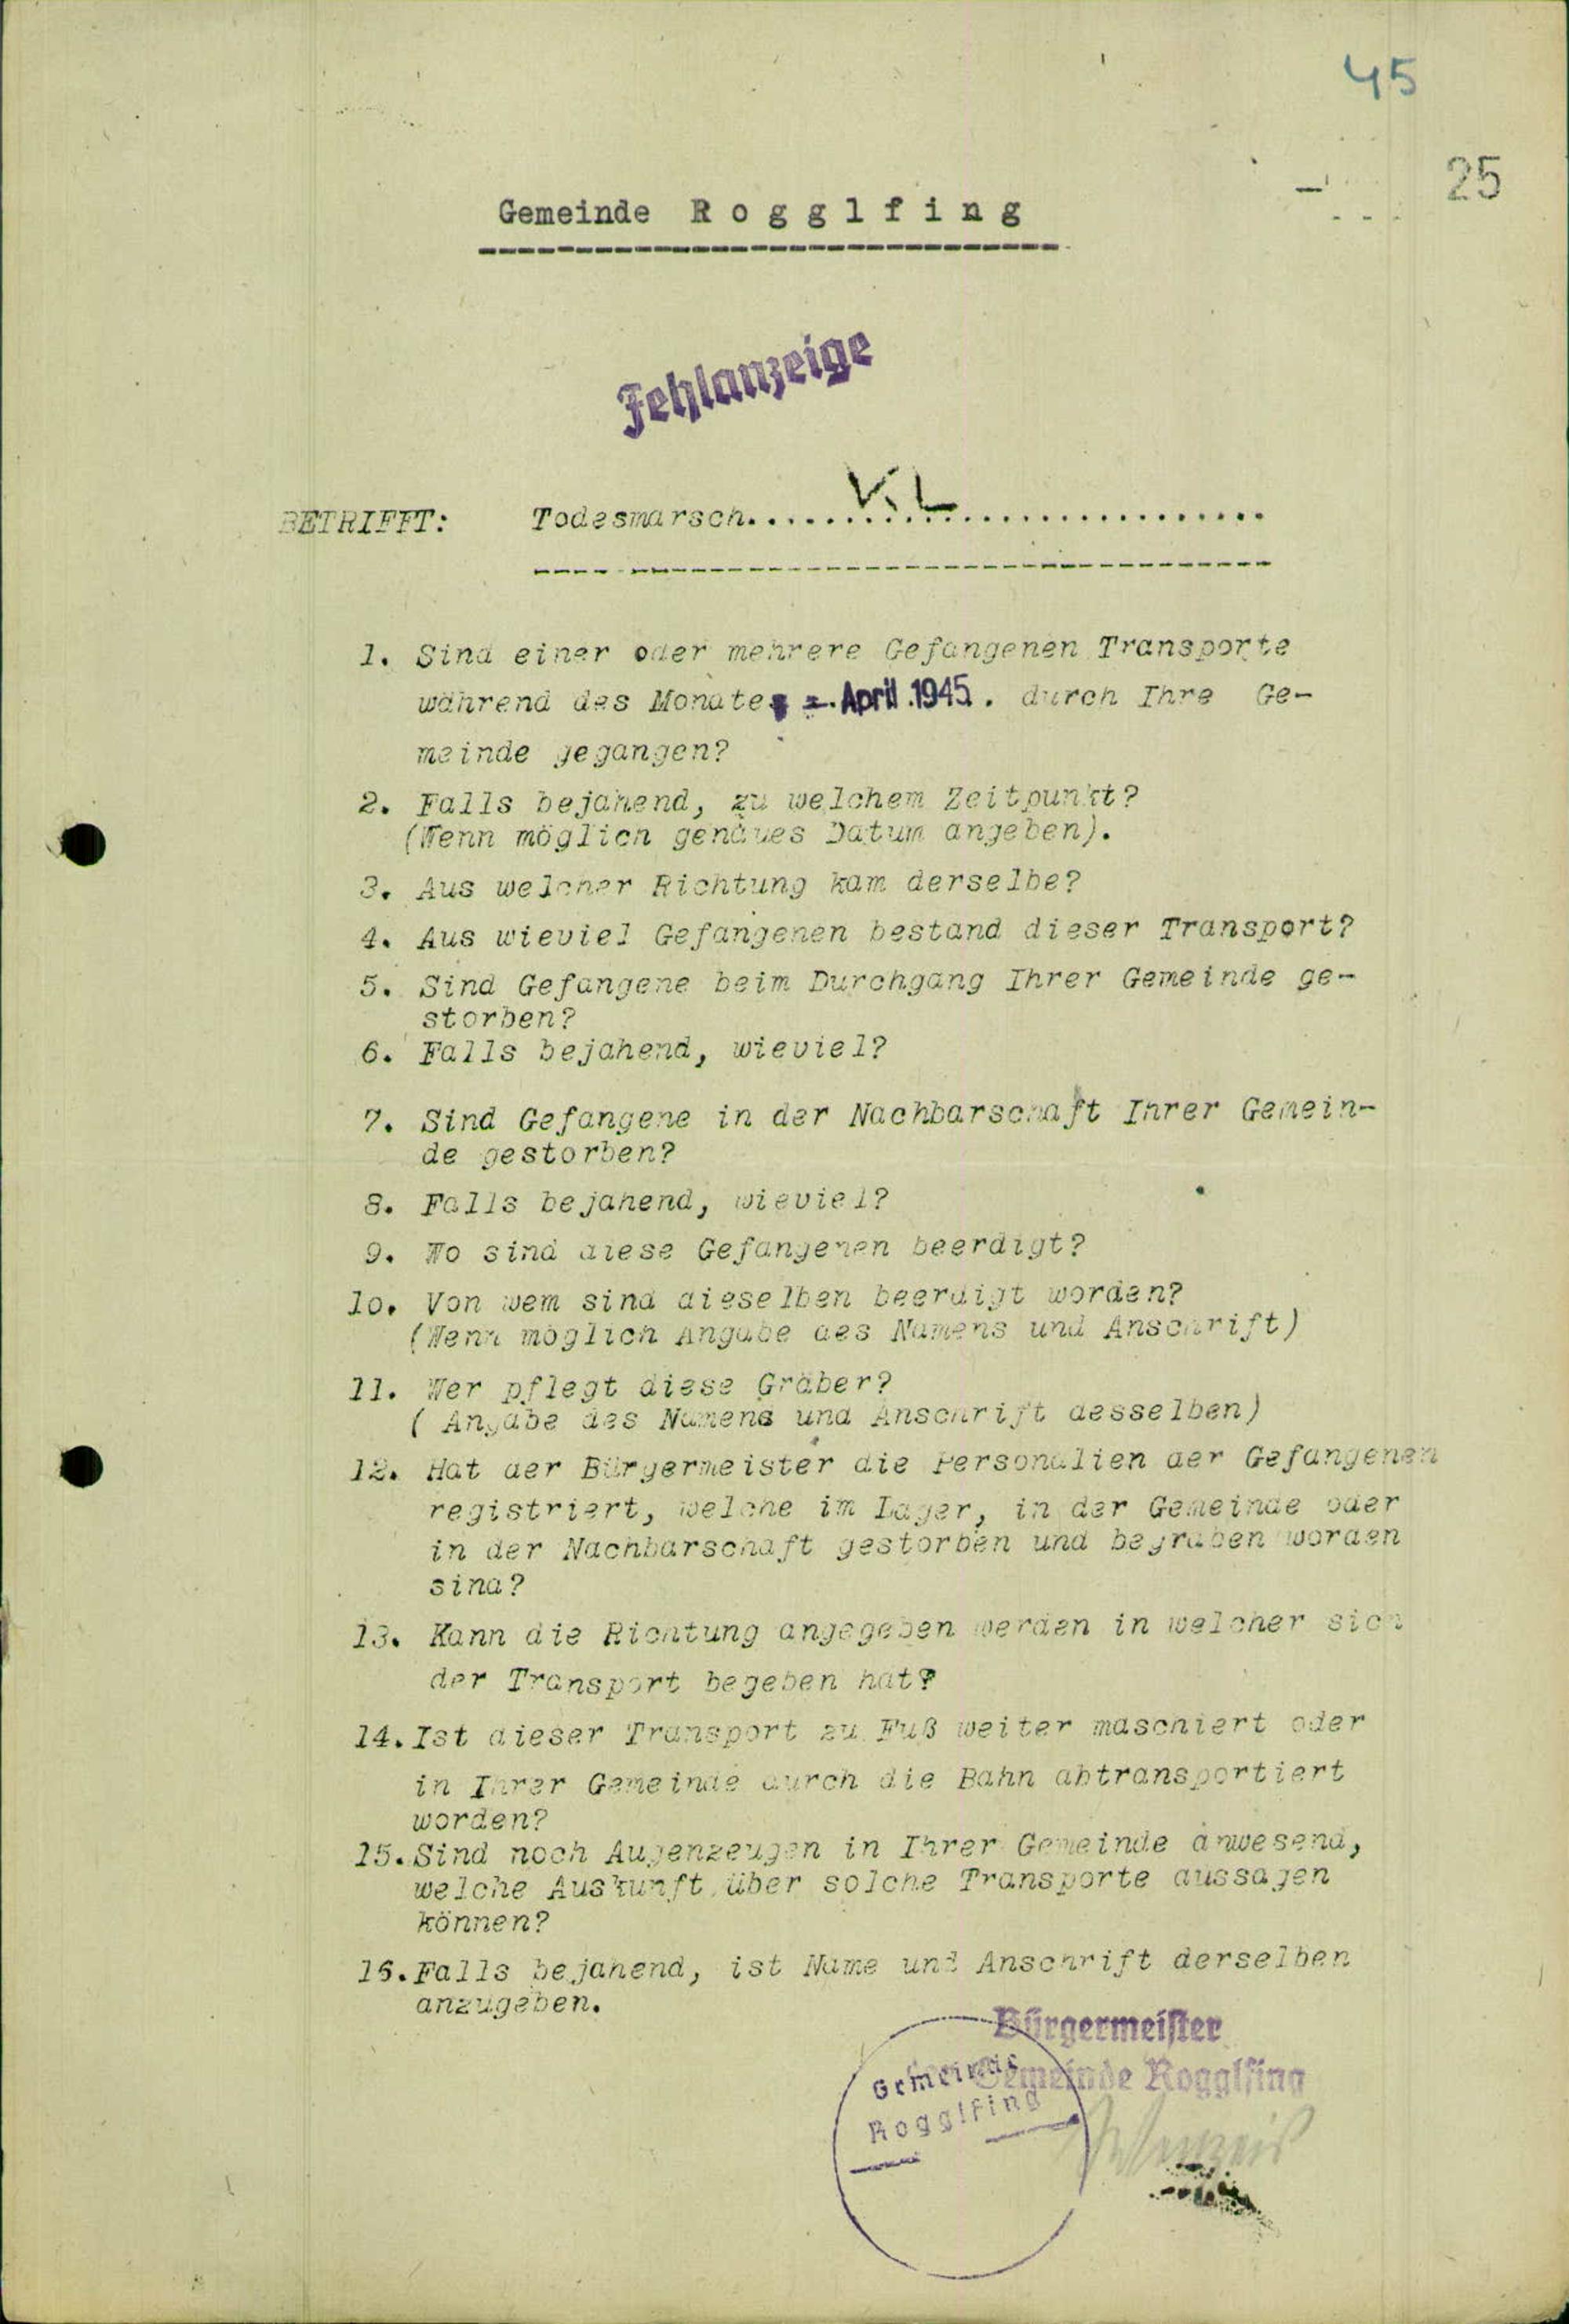 45
25
Gemeinde R o g g l f i n g
Fehlanzeige
KL
BETRIFFT: Todesmarsch..............................
1. Sind einer oder mehrere Gefangenen Transporte
während des Monates April 1945. durch Ihre Ge-
meinde gegangen?
2. Falls bejahend, zu welchem Zeitpunkt?
(Wenn möglich genaues Datum angeben).
3. Aus welcher Richtung kam derselbe?
4. Aus wieviel Gefangenen bestand dieser Transport?
5. Sind Gefangene beim Durchgang Ihrer Gemeinde ge-
storben?
6. Falls bejahend, wieviel?
7. Sind Gefangene in der Nachbarschaft Ihrer Gemein-
de gestorben?
8. Falls bejahend, wieviel?
9. Wo sind diese Gefangenen beerdigt?
10. Von wem sind dieselben beerdigt worden?
(Wenn möglich Angabe des Namens und Anschrift)
11. Wer pflegt diese Gräber?
( Angabe des Namens und Anschrift desselben)
12. Hat der Bürgermeister die Personalien der Gefangenen
registriert, welche im Lager, in der Gemeinde oder
in der Nachbarschaft gestorben und begraben worden
sind?
13. Kann die Richtung angegeben werden in welcher sich
der Transport begeben hat?
14. Ist dieser Transport zu Fuß weiter maschiert oder
in Ihrer Gemeinde durch die Bahn abtransportiert
worden?
15. Sind noch Augenzeugen in Ihrer Gemeinde anwesend,
welche Auskunft über solche Transporte aussagen
können?
16. Falls bejahend, ist Name und Anschrift derselben
anzugeben.
Bürgermeister
Gemeinde Rogglfing
Gemeinde
Rogglfing